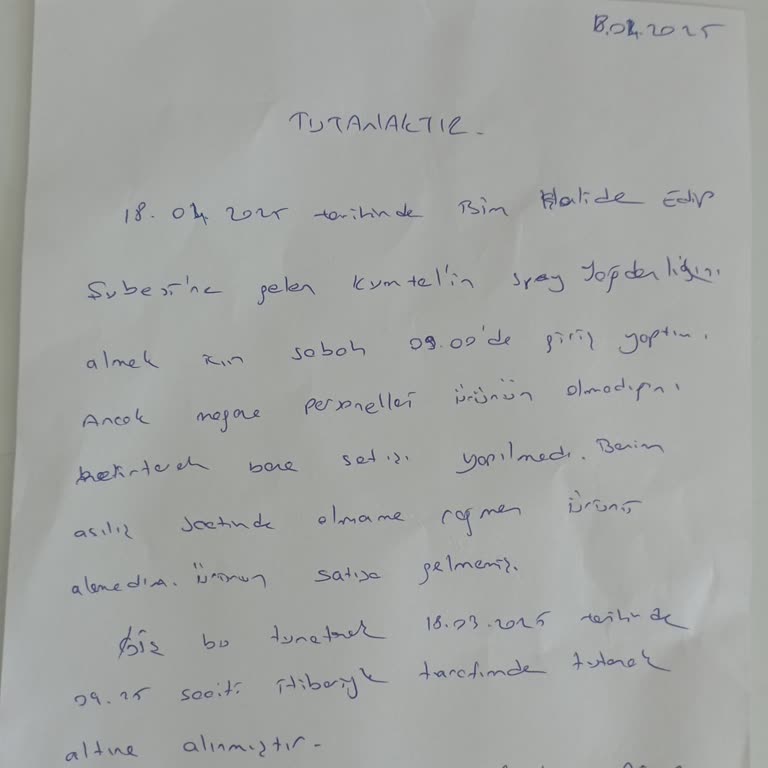 18.04.2025
TUTANAKTIR.
18.04.2025 tarihinde Bim Halide Edip
Şubesi'ne gelen Kumtel'in Sprey Yağdanlığını
almak için sabah 09.00'de giriş yaptım.
Ancak mağaza personelleri ürünün olmadığını
belirterek bana satışı yapılmadı. Benim
açılış saatinde olmama rağmen ürünü
alamadım. ürünün satışa gelmemiş.
İş bu tutanak 18.03.2025 tarihinde
09.25 saati itibariyle tarafımda tutanak
altına alınmıştır.